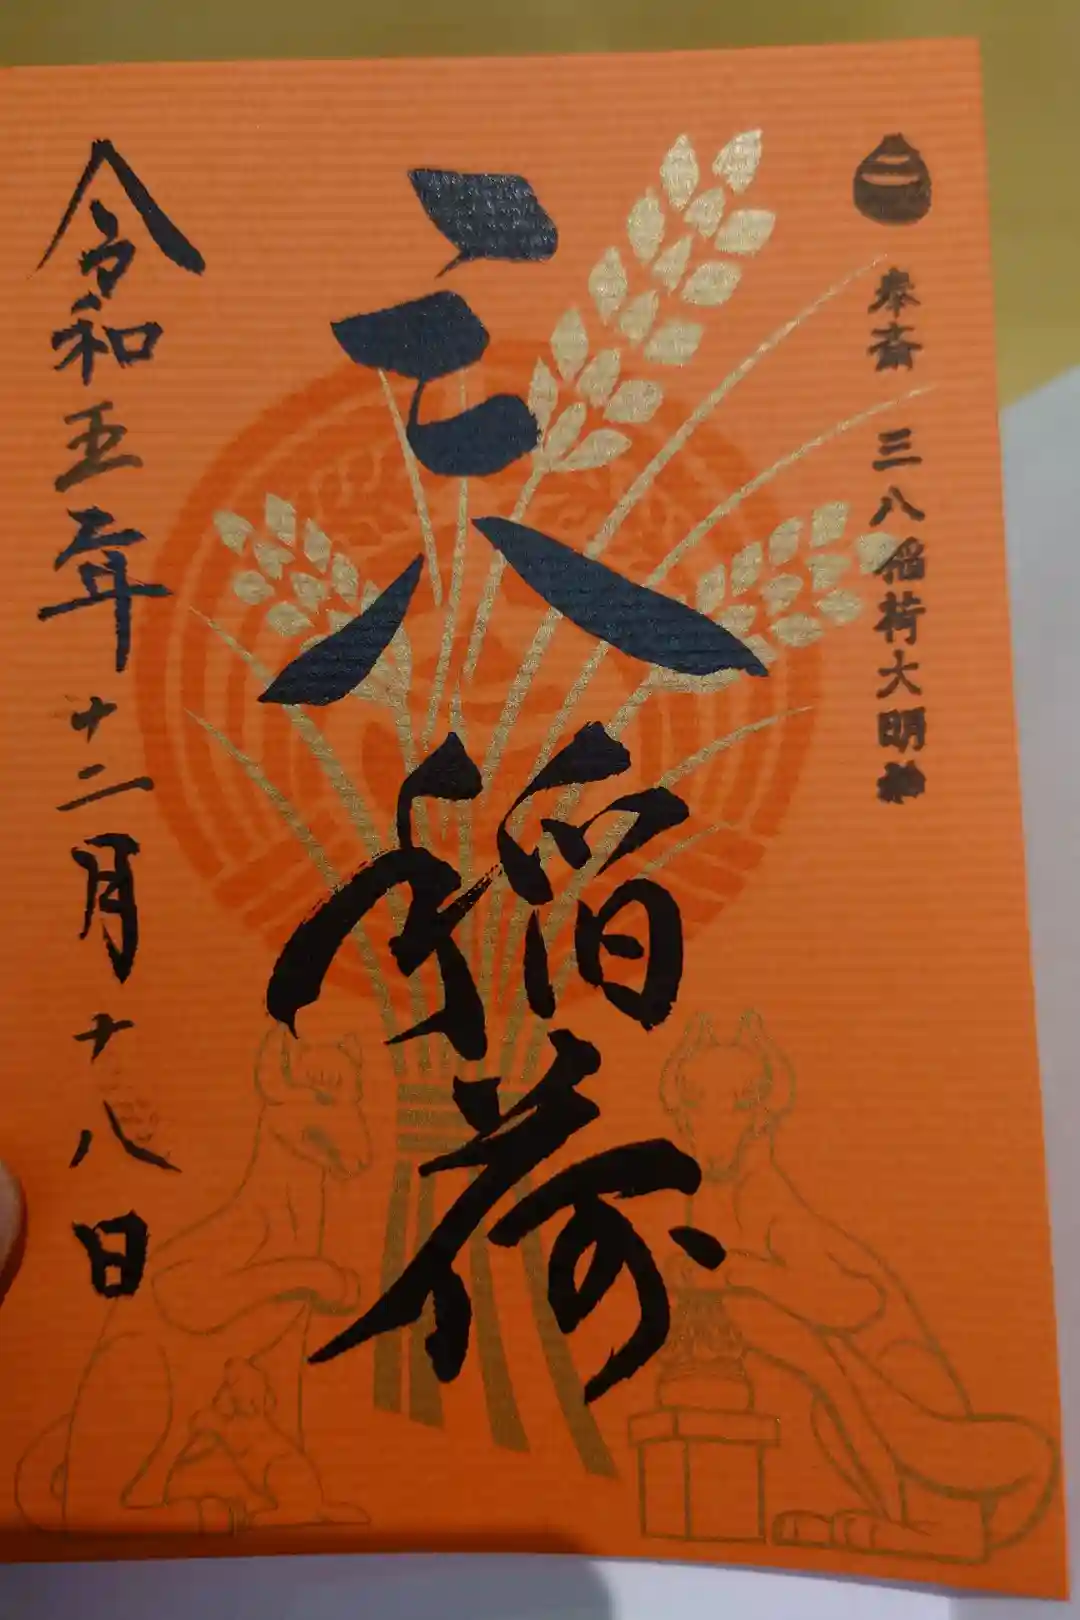 奉斎 三八稲荷大明神
三八稲荷
令和五年十二月十八日